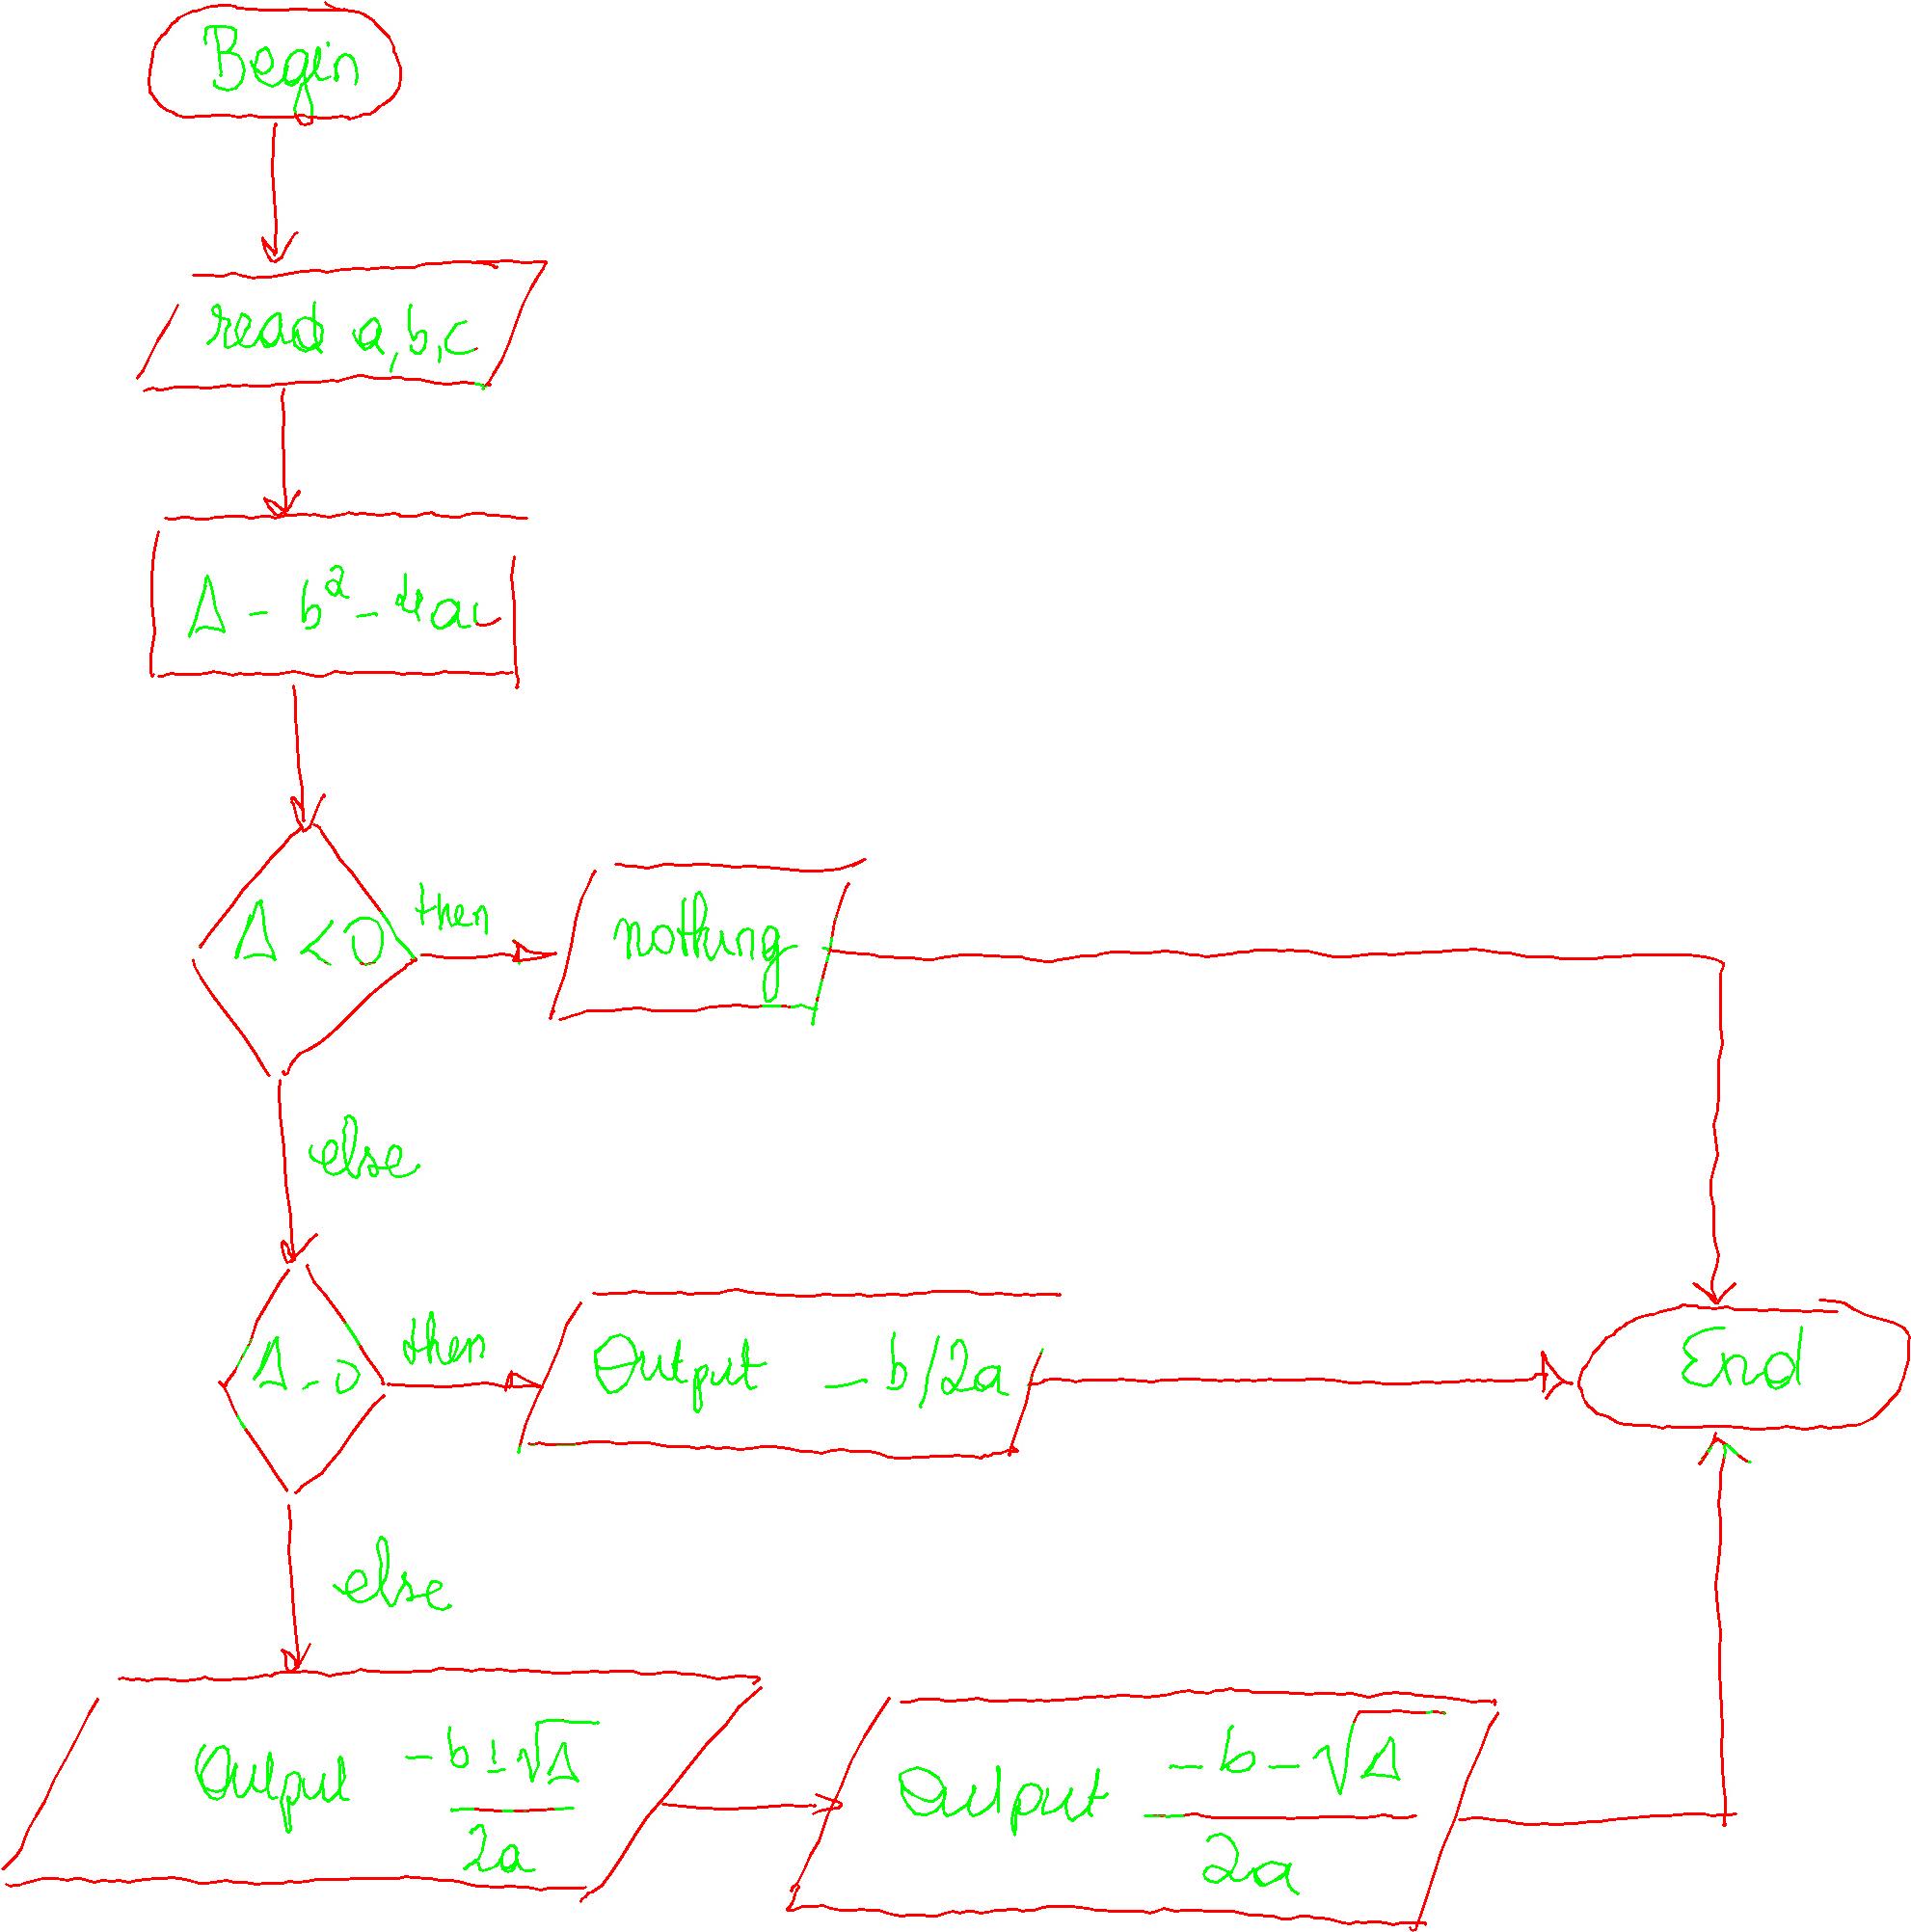 Begin
read a,b,c
Δ - b² - 4ac
Δ < 0
then
nothing
else
Δ - 0
then
Output - b/2a
End
else
Output (-b ± √Δ) / 2a
Output (-b - √Δ) / 2a